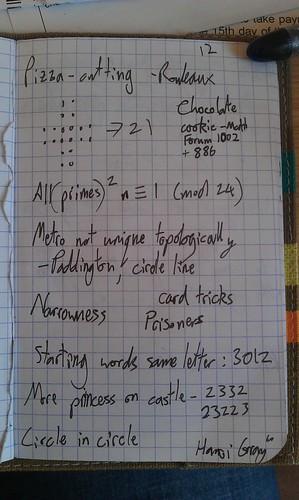 take pay
15th day of
12
Pizza-cutting - Rouleaux
→ 21
Chocolate
cookie - Math
Forum 1002
+ 886
All (primes)² n ≡ 1 (mod 24)
Metro not unique topologically
- Paddington / circle line
Narrowness
card tricks
Prisoners
Starting words same letter : 3012
More princess on castle - 2332
23223
Circle in circle
Hanoi Gray